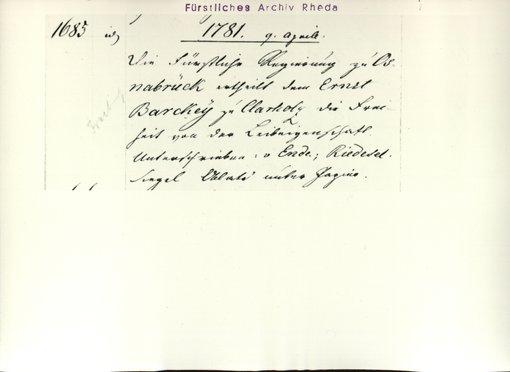 Fürstliches Archiv Rheda
1685
1781. 9. Aprile.
Die Fürstliche Regierung zu Os-
nabrück ertheilt dem Ernst
Barckey zu Clarholz die Frei
heit von der Leibeigenschaft
Unterschrieben: v Ende; Riedesel.
Siegel Oblate unter Papier.